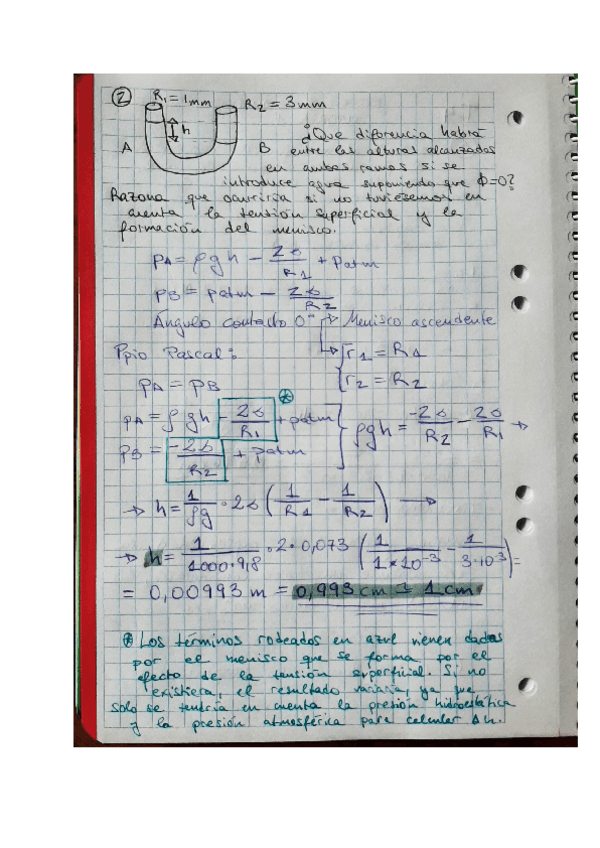 ② R₁ = 1mm R₂ = 3mm
h
¿Que diferencia habrá
A B entre las alturas alcanzadas
en ambas ramas si se
introduce agua suponiendo que Φ=0?
Razona que ocurriría si no tuviesemos en
cuenta la tensión superficial y la
formación del menisco.
pA = ρgh - 2σ/R₁ + patm
pB = patm - 2σ/R₂
Ángulo contacto 0° → Menisco ascendente
Ppio Pascal: → { r₁ = R₁
pA = pB r₂ = R₂
pA = ρgh - 2σ/R₁ + patm ⊛ } ρgh = -2σ/R₂ - 2σ/R₁ →
pB = -2σ/R₂ + patm
→ h = 1/ρg · 2σ (1/R₁ - 1/R₂) →
→ h = 1/1000·9,8 · 2 · 0,073 (1/1×10⁻³ - 1/3·10⁻³) =
= 0,00993 m = 0,993 cm ≃ 1 cm
⊛ Los términos rodeados en azul vienen dados
por el menisco que se forma por el
efecto de la tensión superficial. Si no
existiera, el resultado variaría, ya que
solo se tendría en cuenta la presión hidroestática
y la presión atmosférica para calcular Δh.